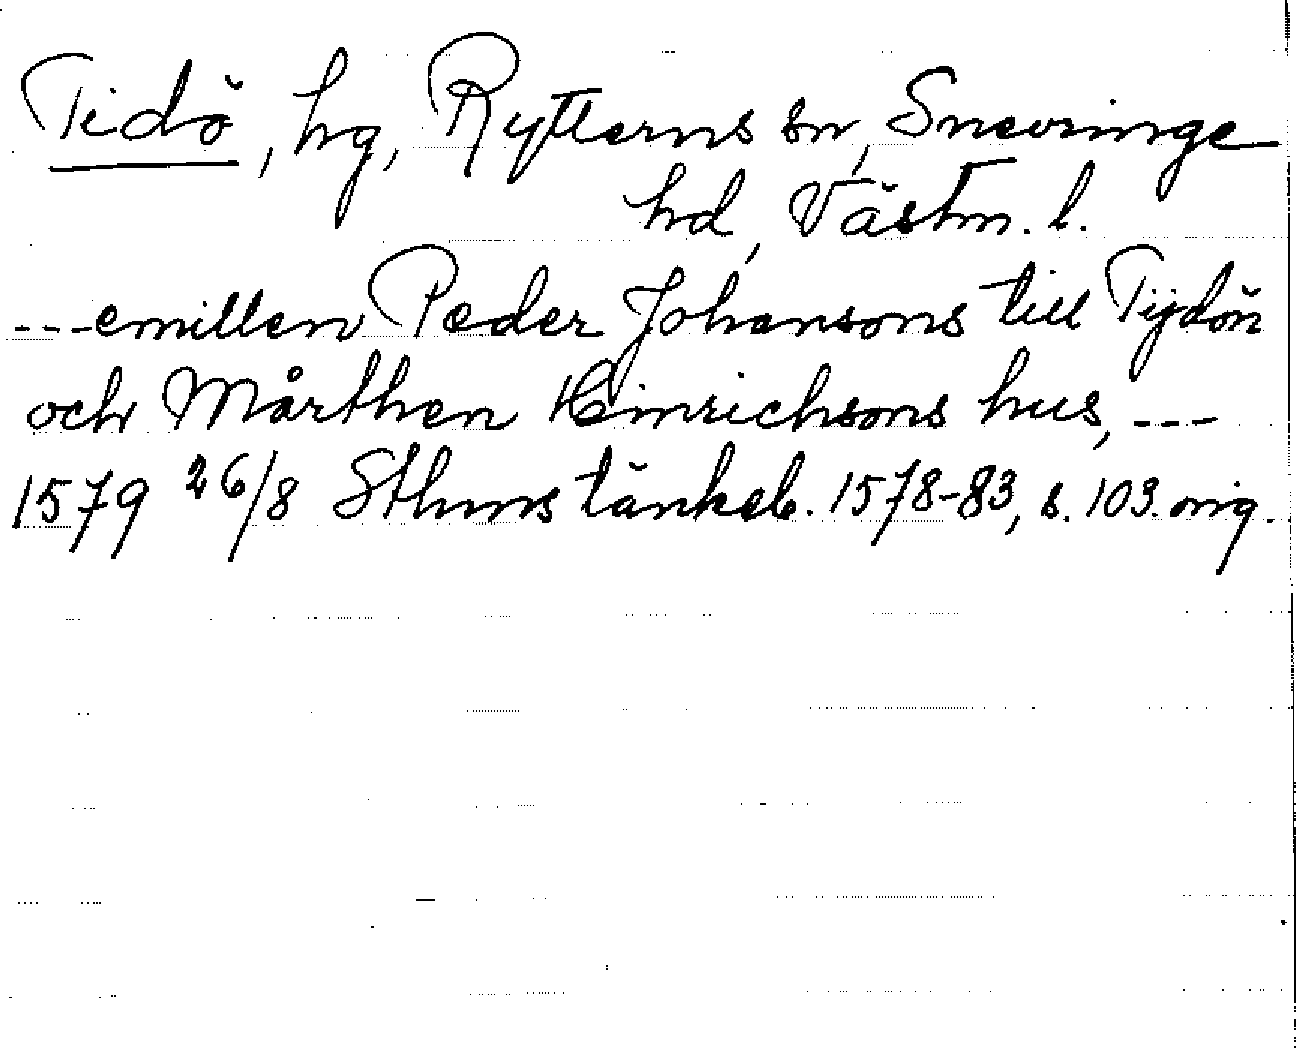 Tidö, hg, Rytterns sn, Snevringe
hd, Västm. l.
---emillen Peder Johansons till Tijdön
och Mårthen Hinrichsons hus, ---
1579 26/8 Sthms tänkeb. 1578-83, s. 103. orig.